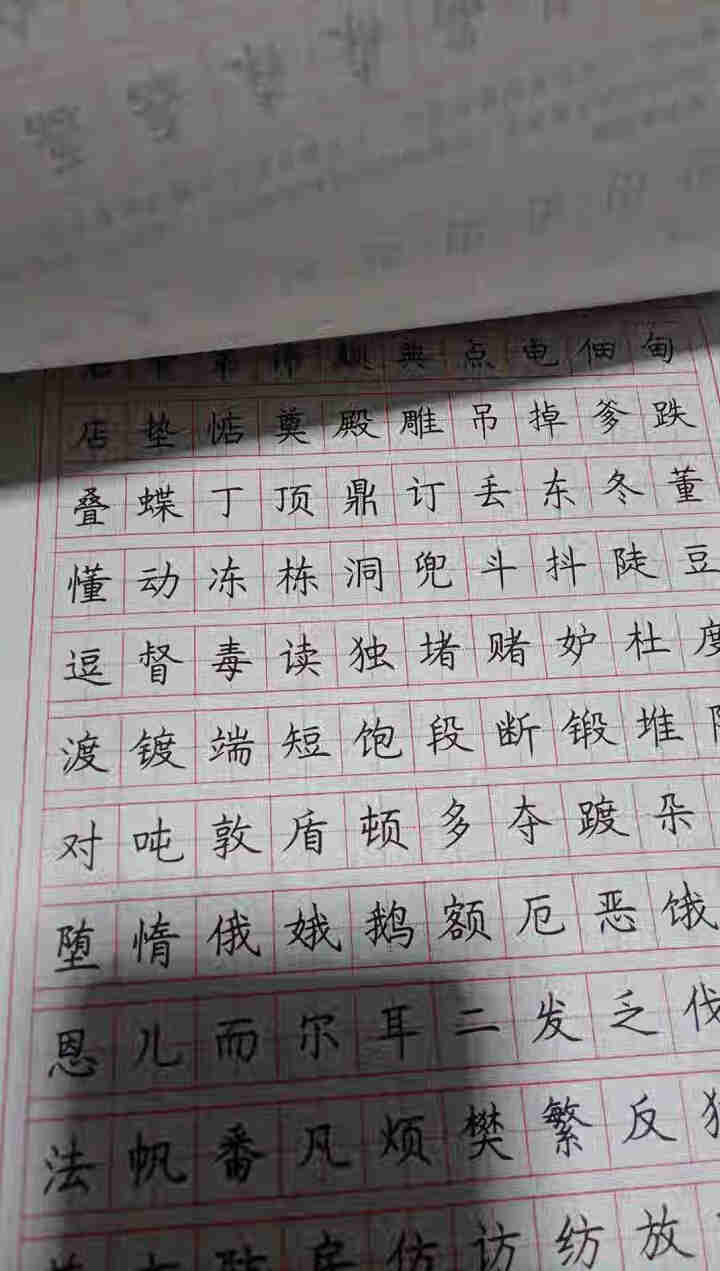 典 点 电 佃 甸
店 垫 惦 奠 殿 雕 吊 掉 爹 跌
叠 蝶 丁 顶 鼎 订 丢 东 冬 董
懂 动 冻 栋 洞 兜 斗 抖 陡 豆
逗 督 毒 读 独 堵 赌 妒 杜 度
渡 镀 端 短 饱 段 断 锻 堆
对 吨 敦 盾 顿 多 夺 踱 朵
堕 惰 俄 娥 鹅 额 厄 恶 饿
恩 儿 而 尔 耳 二 发 乏 伐
法 帆 番 凡 烦 樊 繁 反
房 仿 访 纺 放